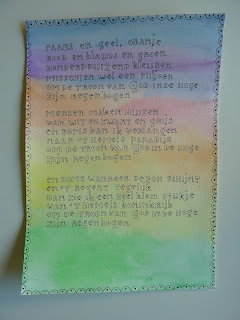 Paars en geel, oranje
rood en blauw en groen
honderd duizend kleuren
misschien wel een miljoen
om de troon van God in de hoge
zijn regenbogen

mensen maken ruzie
van wit en zwart en grijs
en soms kan ik verlangen
naar 't hemels paradijs
om de troon van God in de hoge
zijn regenbogen

en soms wanneer de zon schijnt
en 't regent tegelijk
dan zie ik een heel klein stukje
van 't hemels koninkrijk
om de troon van God in de hoge
zijn regenbogen